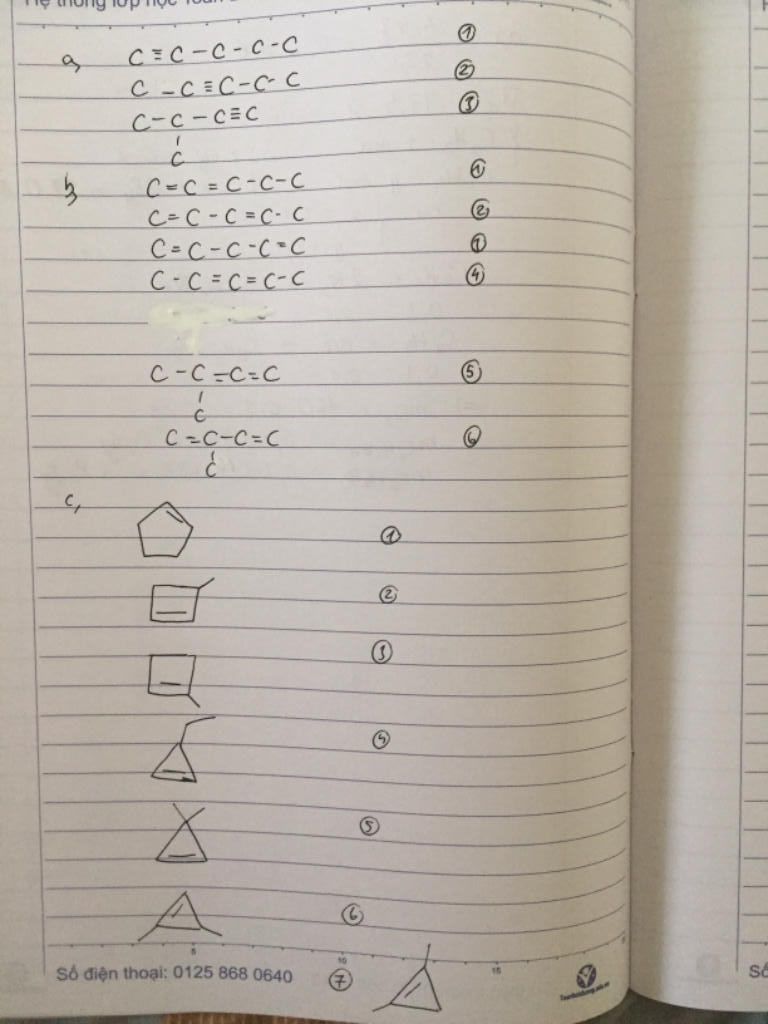 Hệ thống lớp học Toán
a, C≡C-C-C-C ①
C-C≡C-C-C ②
C-C-C≡C ③
C
b, C=C=C-C-C ①
C=C-C=C-C ②
C=C-C-C=C ③
C-C=C=C-C ④
C-C=C=C ⑤
C
C=C-C=C ⑥
C
c, ①
②
③
④
⑤
⑥
5 10 15
Số điện thoại: 0125 868 0640 ⑦
Số